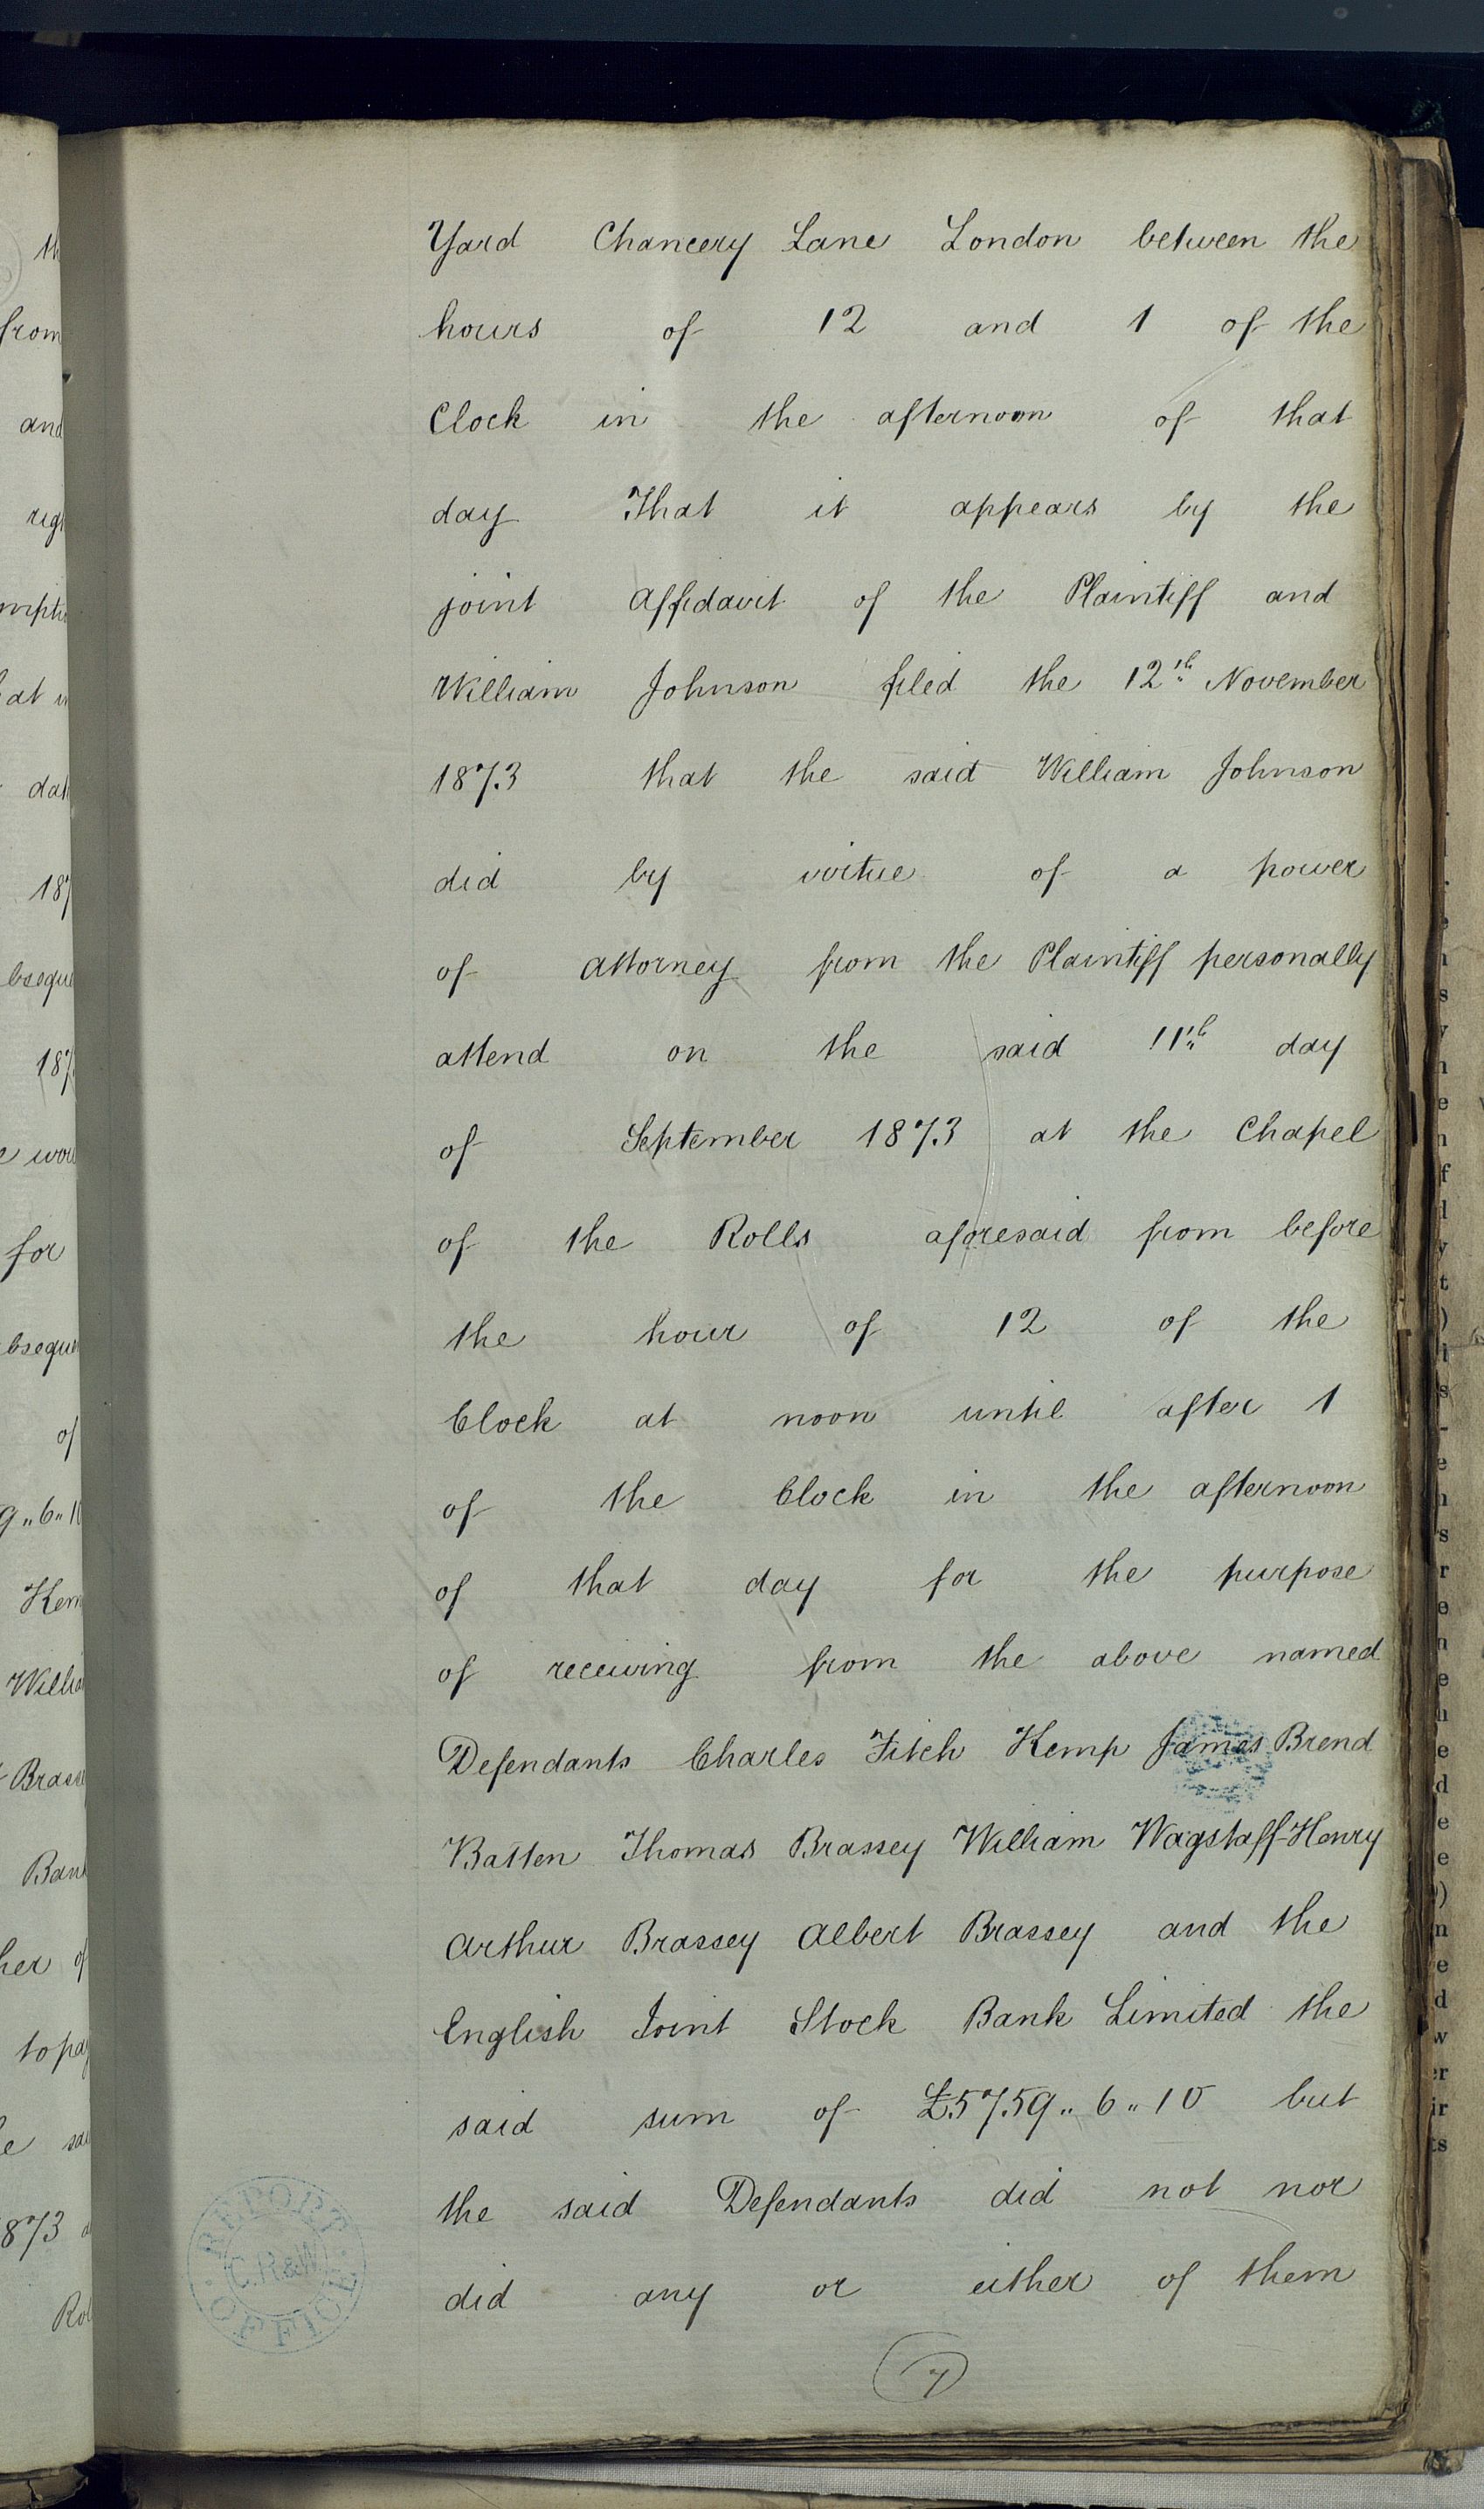 Yard Chancery Lane London between the
hours of 12 and 1 of the
Clock in the afternoon of that
day That it appears by the
joint Affidavit of the Plaintiff and
William Johnson filed the 12th November
1873 that the said William Johnson
did by virtue of a power
of Attorney from the Plaintiff personally
attend on the said 11th day
of September 1873 at the Chapel
of the Rolls aforesaid from before
the hour of 12 of the
Clock at noon until after 1
of the Clock in the afternoon
of that day for the purpose
of receiving from the above named
Defendants Charles Fitch Kemp James Brend
Batten Thomas Brassey William Wagstaff Henry
Arthur Brassey Albert Brassey and the
English Joint Stock Bank Limited the
said sum of £5759.. 6.. 10 but
the said Defendants did not nor
did any or either of them
7
REPORT OFFICE
C.R&W
from
and
187
187
for
of
9.. 6.. 1
Kem
Willia
Brasse
Ban
of
to pa
873
Rol